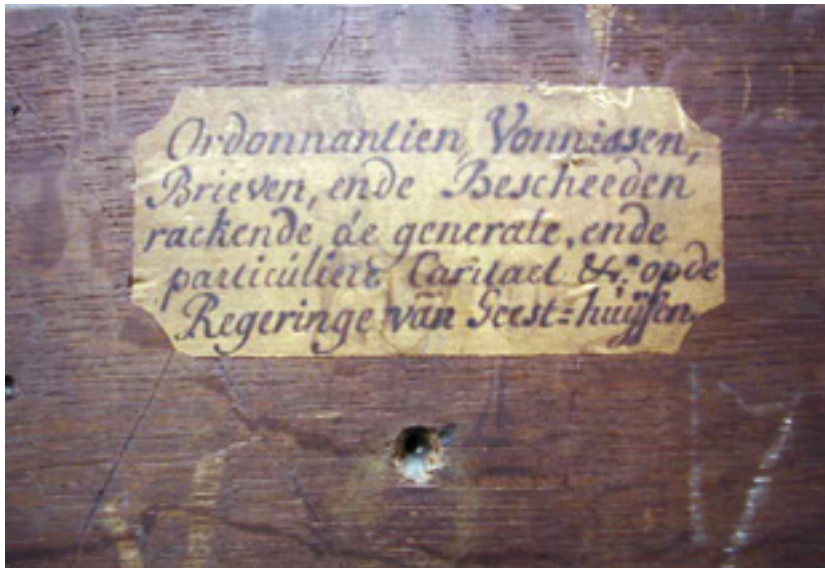 Ordonnantien, Vonnissen,
Brieven, ende Bescheeden
rackende de generale, ende
particúliere Caritaet &.ª op de
Regeringe van Geest=huÿsen.